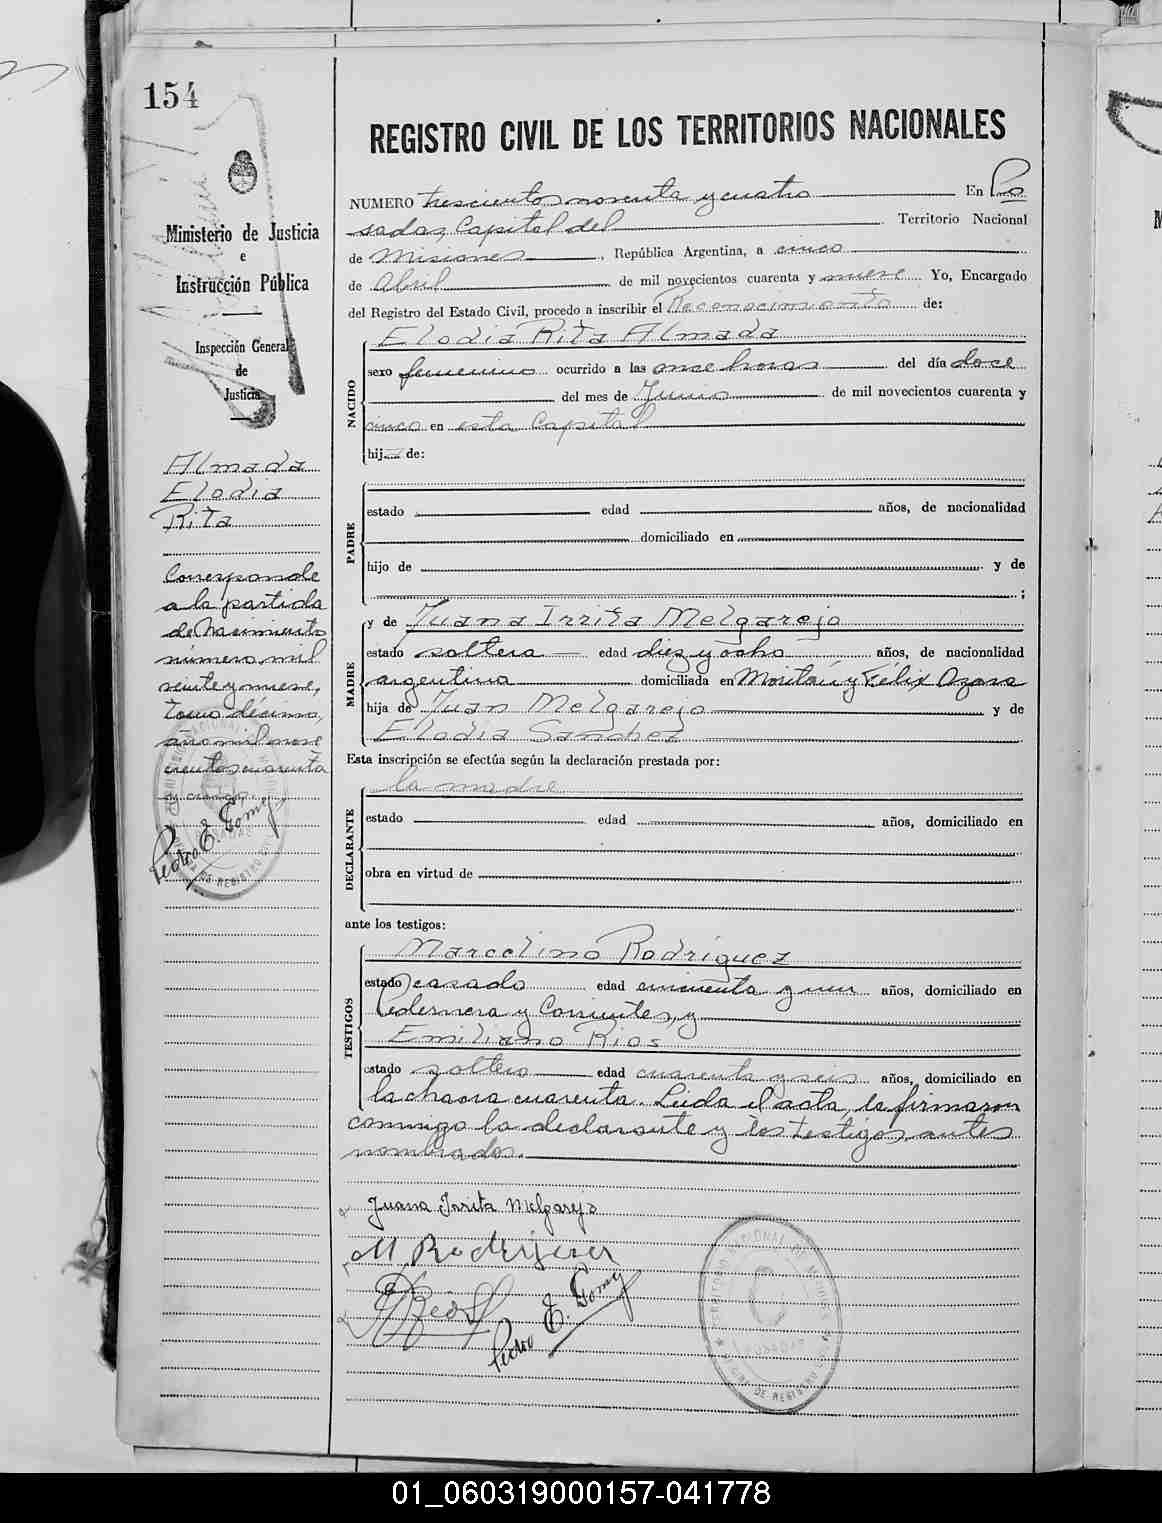 154
Ministerio de Justicia
e
Instrucción Pública
Inspección General
de
Justicia
Almada
Elodia
Rita
Corresponde
a la partida
de Nacimiento
número mil
veinte y nueve,
tomo décimo,
año mil nove
cientos cuarenta
y cinco.
Pedro E. Gomez
REGISTRO CIVIL DE LOS TERRITORIOS NACIONALES
NUMERO trescientos noventa y cuatro En Po
sadas, Capital del Territorio Nacional
de Misiones, República Argentina, a cinco
de Abril de mil novecientos cuarenta y nueve Yo, Encargado
del Registro del Estado Civil, procedo a inscribir el Reconocimiento de:
NACIDO
Elodia Rita Almada
sexo femenino ocurrido a las once horas del día doce
del mes de Junio de mil novecientos cuarenta y
cinco en esta Capital
hija de:
PADRE
estado edad años, de nacionalidad
domiciliado en
hijo de y de
;
MADRE
y de Juana Irrita Melgarejo
estado soltera edad diez y ocho años, de nacionalidad
argentina domiciliada en Moritán y Félix Azara
hija de Juan Melgarejo y de
Elodia Sanchez
Esta inscripción se efectúa según la declaración prestada por:
DECLARANTE
la madre
estado edad años, domiciliado en
obra en virtud de
ante los testigos:
TESTIGOS
Marcelino Rodriguez
estado casado edad cincuenta y un años, domiciliado en
Pedernera y Corrientes, y
Emiliano Rios
estado soltero edad cuarenta y seis años, domiciliado en
la chacra cuarenta. Leida el acta, la firmaron
conmigo la declarante y los testigos antes
nombrados.
Juana Irrita Melgarejo
M Rodriguez
E Rios
Pedro E. Gomez
01_060319000157-041778